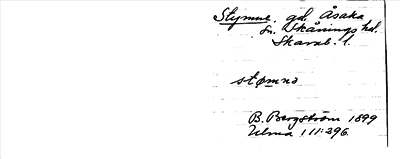 Stymne. gd. Åsaka
sn. Skånings hd.
Skarab. l.
stømnə
B. Bergström 1899
Ulma 111:396.